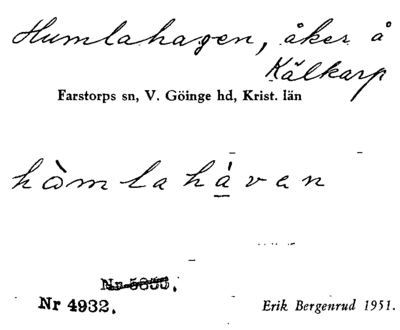 Humlahagen, åker å
Kälkarp
Farstorps sn, V. Göinge hd, Krist. län
hòmlahávan
Nr 5855.
Nr 4932.
Erik Bergenrud 1951.